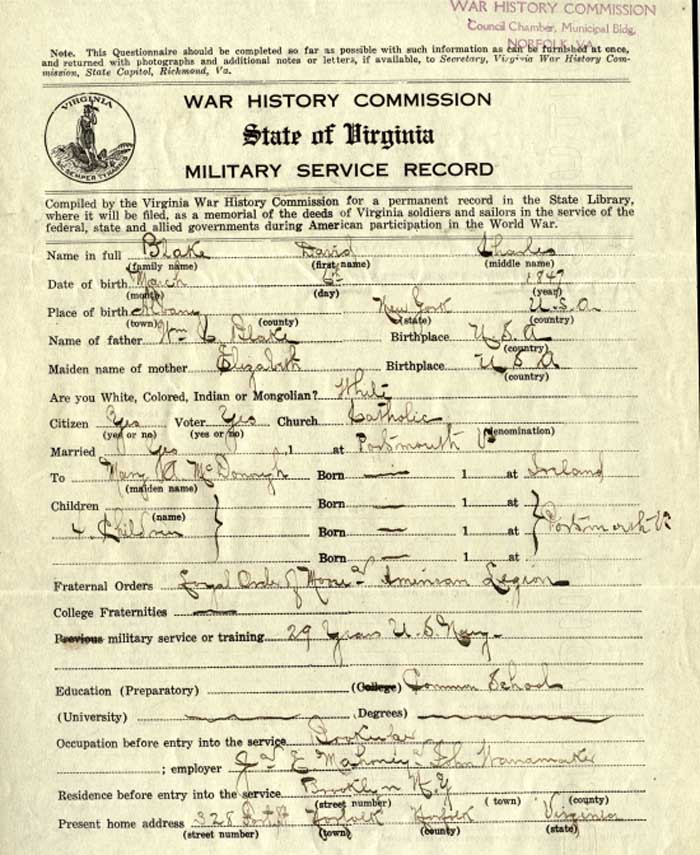 WAR HISTORY COMMISSION
Council Chamber, Municipal Bldg,
NORFOLK, VA.
Note. This Questionnaire should be completed so far as possible with such information as can be furnished at once,
and returned with photographs and additional notes or letters, if available, to Secretary, Virginia War History Com-
mission, State Capitol, Richmond, Va.
VIRGINIA
SIC SEMPER TYRANNIS
WAR HISTORY COMMISSION
State of Virginia
MILITARY SERVICE RECORD
Compiled by the Virginia War History Commission for a permanent record in the State Library,
where it will be filed, as a memorial of the deeds of Virginia soldiers and sailors in the service of the
federal, state and allied governments during American participation in the World War.
Name in full Blake David Charles
(family name) (first name) (middle name)
Date of birth March 6th
(month) (day) (year)
Place of birth Albany New York U.S.A.
(town) (county) (state) (country)
Name of father Wm C. Blake Birthplace U S A
(country)
Maiden name of mother Elizabeth Birthplace U S A
(country)
Are you White, Colored, Indian or Mongolian? White
Citizen Yes Voter Yes Church Catholic
(yes or no) (yes or no) (denomination)
Married Yes 1 at Portsmouth Va
To Mary A McDonough Born — 1 at Ireland
(maiden name)
Children Born — 1 at
(name)
4 Children Born — 1 at Portsmouth Va
Born — 1 at
Fraternal Orders Loyal Order of Moose & American Legion
College Fraternities —
Previous military service or training 29 Years U.S. Navy-
Education (Preparatory) (College) Common School
(University) — Degrees) —
Occupation before entry into the service
; employer Jas E Mahoney & John Wanamaker
Residence before entry into the service Brooklyn N.Y
(street number) (town) (county)
Present home address 328 Norfolk Norfolk Virginia
(street number) (town) (county) (state)